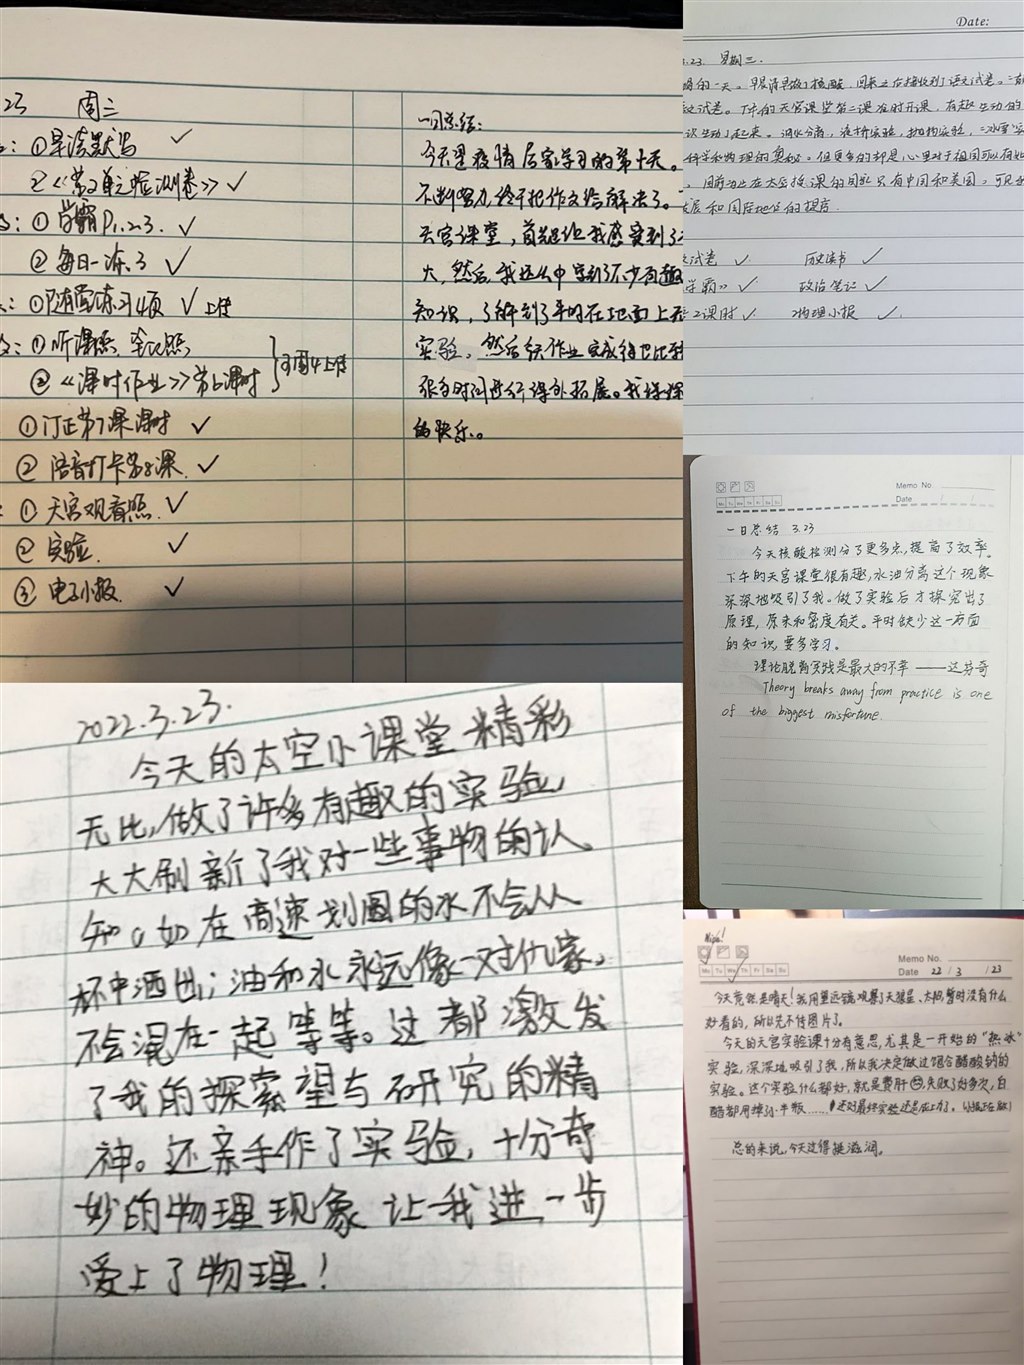 23 周三
: ①早读默写 ✓
②《第2单元临测卷》✓
: ①学霸P1.2.3. ✓
②每日一练3 ✓
: ①随堂练习4页 ✓上传
: ①听课照.笔记照
②《课时作业》第6课时 }周4上传
①订正第7课课时 ✓
②语音打卡第8课. ✓
: ①天宫观看照. ✓
②实验. ✓
③电子小报. ✓
一日总结:
今天是疫情居家学习的第十天。
不断努力,终于把作文给解决了。
天宫课堂,首先让我感受到了
大,然后,我还从中学到了不少有趣
知识,了解到了平时在地面上
实验。然后
张多时间进行课外拓展。我深深
的快乐。
Date:
.23. 星期三.
的一天。早晨清早做了核酸,回来之后接收到了语文试卷。
试卷。下午的天宫课堂第二课准时开课,有趣生动的
识生动了起来。油水分离,液桥实验,抛物实验,"冰雪"实
科学和物理的奥秘。但更多的却是心里对于祖国可以有如
,目前为止在太空授课的国家只有中国和美国,可见
发展和国际地位的提高.
试卷 ✓ 历史读书 ✓
学霸》 ✓ 政治笔记 ✓
2课时 ✓ 物理小报 ✓.
Memo No.
Mo Tu We Th Fr Sa Su
Date / /
一日总结 3.23
今天核酸检测分了更多点,提高了效率。
下午的天宫课堂很有趣,水油分离这个现象
深深地吸引了我。做了实验后才探究出了
原理,原来和密度有关。平时缺少这一方面
的知识,要多学习。
理论脱离实践是最大的不幸 ——达芬奇
Theory breaks away from practice is one
of the biggest misfortune.
2022.3.23.
今天的太空小课堂精彩
无比,做了许多有趣的实验,
大大刷新了我对一些事物的认
知。如在高速划圆的水不会从
杯中洒出;油和水永远像一对仇家,
不会混在一起等等。这都激发
了我的探索望与研究的精
神。还亲手作了实验,十分奇
妙的物理现象让我进一步
爱上了物理!
Memo No.
Mo Tu We Th Fr Sa Su
Date 22 / 3 / 23
今天竟然是晴天!我用望远镜观察了天狼星、太阳,暂时没有什么
好看的,所以先不传图片了。
今天的天宫实验课十分有意思,尤其是一开始的"热冰"
实验,深深地吸引了我,所以我决定做过饱合醋酸钠的
实验。这个实验什么都好,就是费肝失败了好多次,白
醋都用掉了小半瓶......不过好最终实验还是成上了。(小报正在做)
总的来说,今天过得挺滋润。